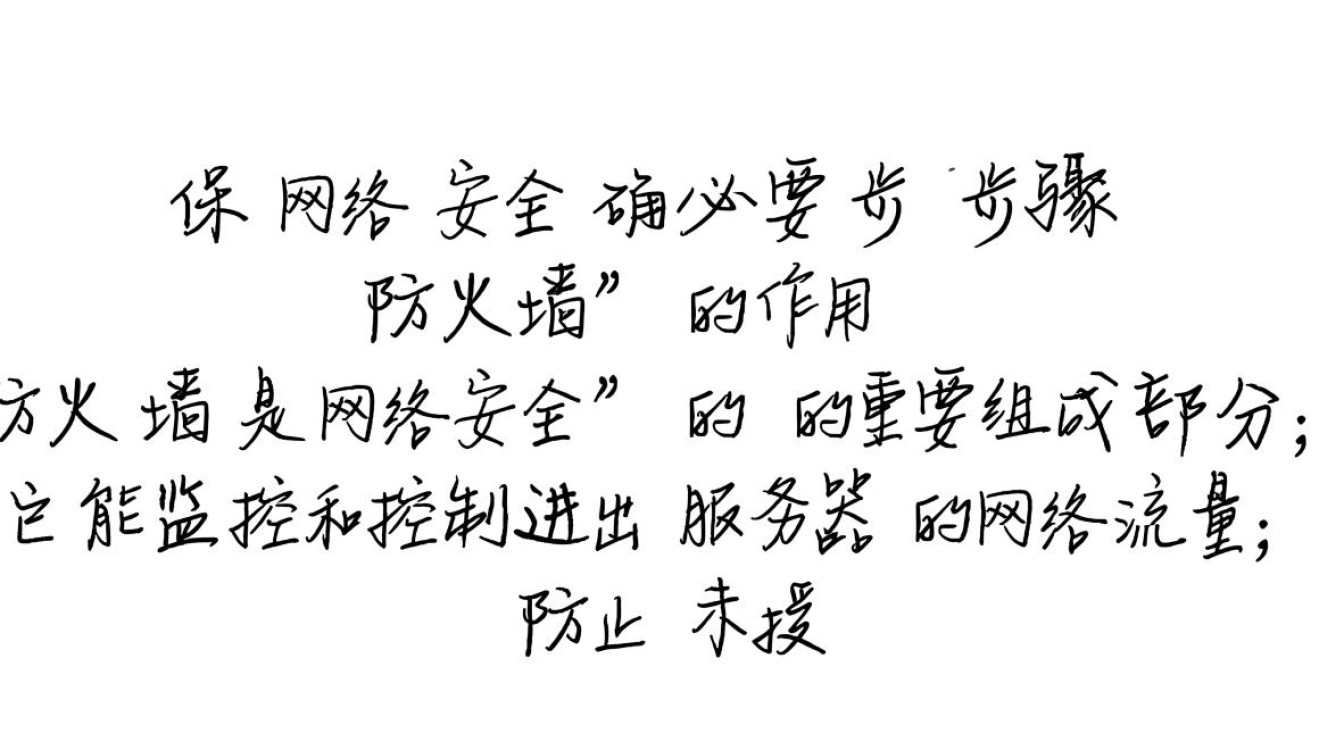 保 网络 安全 确必要 步 步骤
防火墙” 的作用
防火 墙 是 网络安全” 的 的重要组成部分;
它能监控和控制进出 服务器 的网络流量;
防止 未授